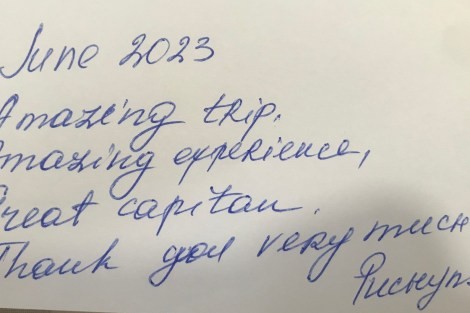 June 2023
Amazing trip.
Amazing experience,
Great capitan.
Thank you very much